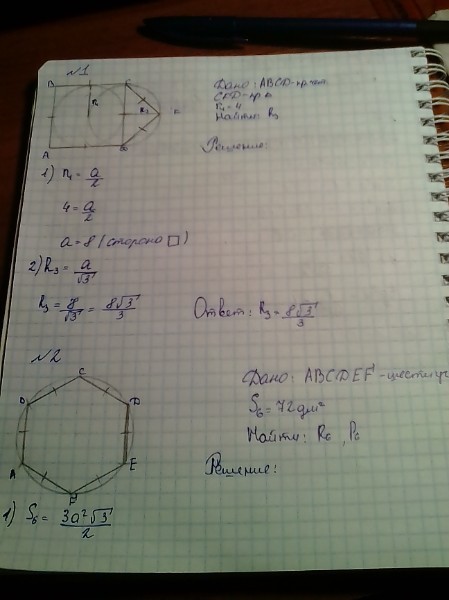 №1
B C
r₄ R₃
A D
Дано: ABCD-
r₄ = 4
Найти: R₃
Решение:
1) r₄ = a/2
4 = a/2
a = 8 (сторона □)
2) R₃ = a/√3
R₃ = 8/√3 = 8√3/3
Ответ: R₃ = 8√3/3
№2
C
D
A E
F
Дано: ABCDEF-шестиуг
S₆ = 72дм²
Найти: R₆, P₆
Решение:
1) S₆ = 3a²√3/2